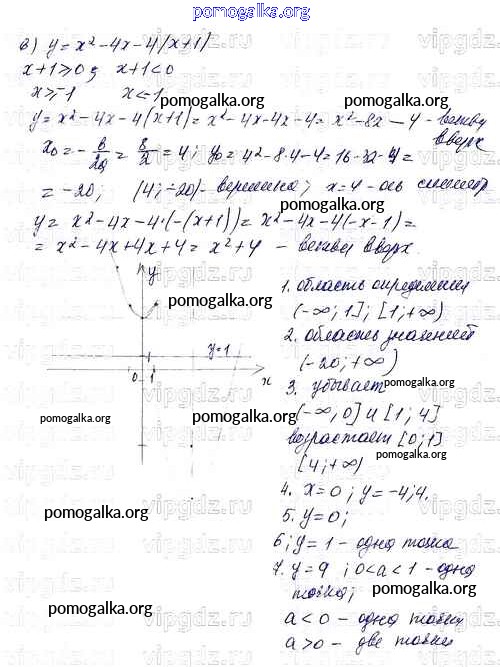 pomogalka.org
в) y = x² - 4x - 4|x+1|
x+1 ≥ 0; x+1 < 0
x ≥ -1 x < -1
pomogalka.org pomogalka.org
y = x² - 4x - 4(x+1) = x² - 4x - 4x - 4 = x² - 8x - 4 - ветви вверх
x₀ = -b/2a = 8/2 = 4; y₀ = 4² - 8·4 - 4 = 16 - 32 - 4 =
= -20; (4; -20) - вершина; x = 4 - ось симметр
y = x² - 4x - 4·(-(x+1)) = x² - 4x - 4(-x-1) =
= x² - 4x + 4x + 4 = x² + 4 - ветви вверх.
y
pomogalka.org
y=1
0 1 x
pomogalka.org
pomogalka.org
1. область определения
(-∞; 1]; [1; +∞)
2. область значений
(-20; +∞)
3. убывает
pomogalka.org
(-∞, 0] и [1; 4]
возрастает [0; 1]
[4; +∞)
pomogalka.org
4. x = 0; y = -4; 4.
5. y = 0;
6; y = 1 - одна точка
pomogalka.org
7. y = 9; 0 < a < 1 - одна
точка;
pomogalka.org
a < 0 - одна точка
a > 0 - две точки
pomogalka.org
vipgdz.ru